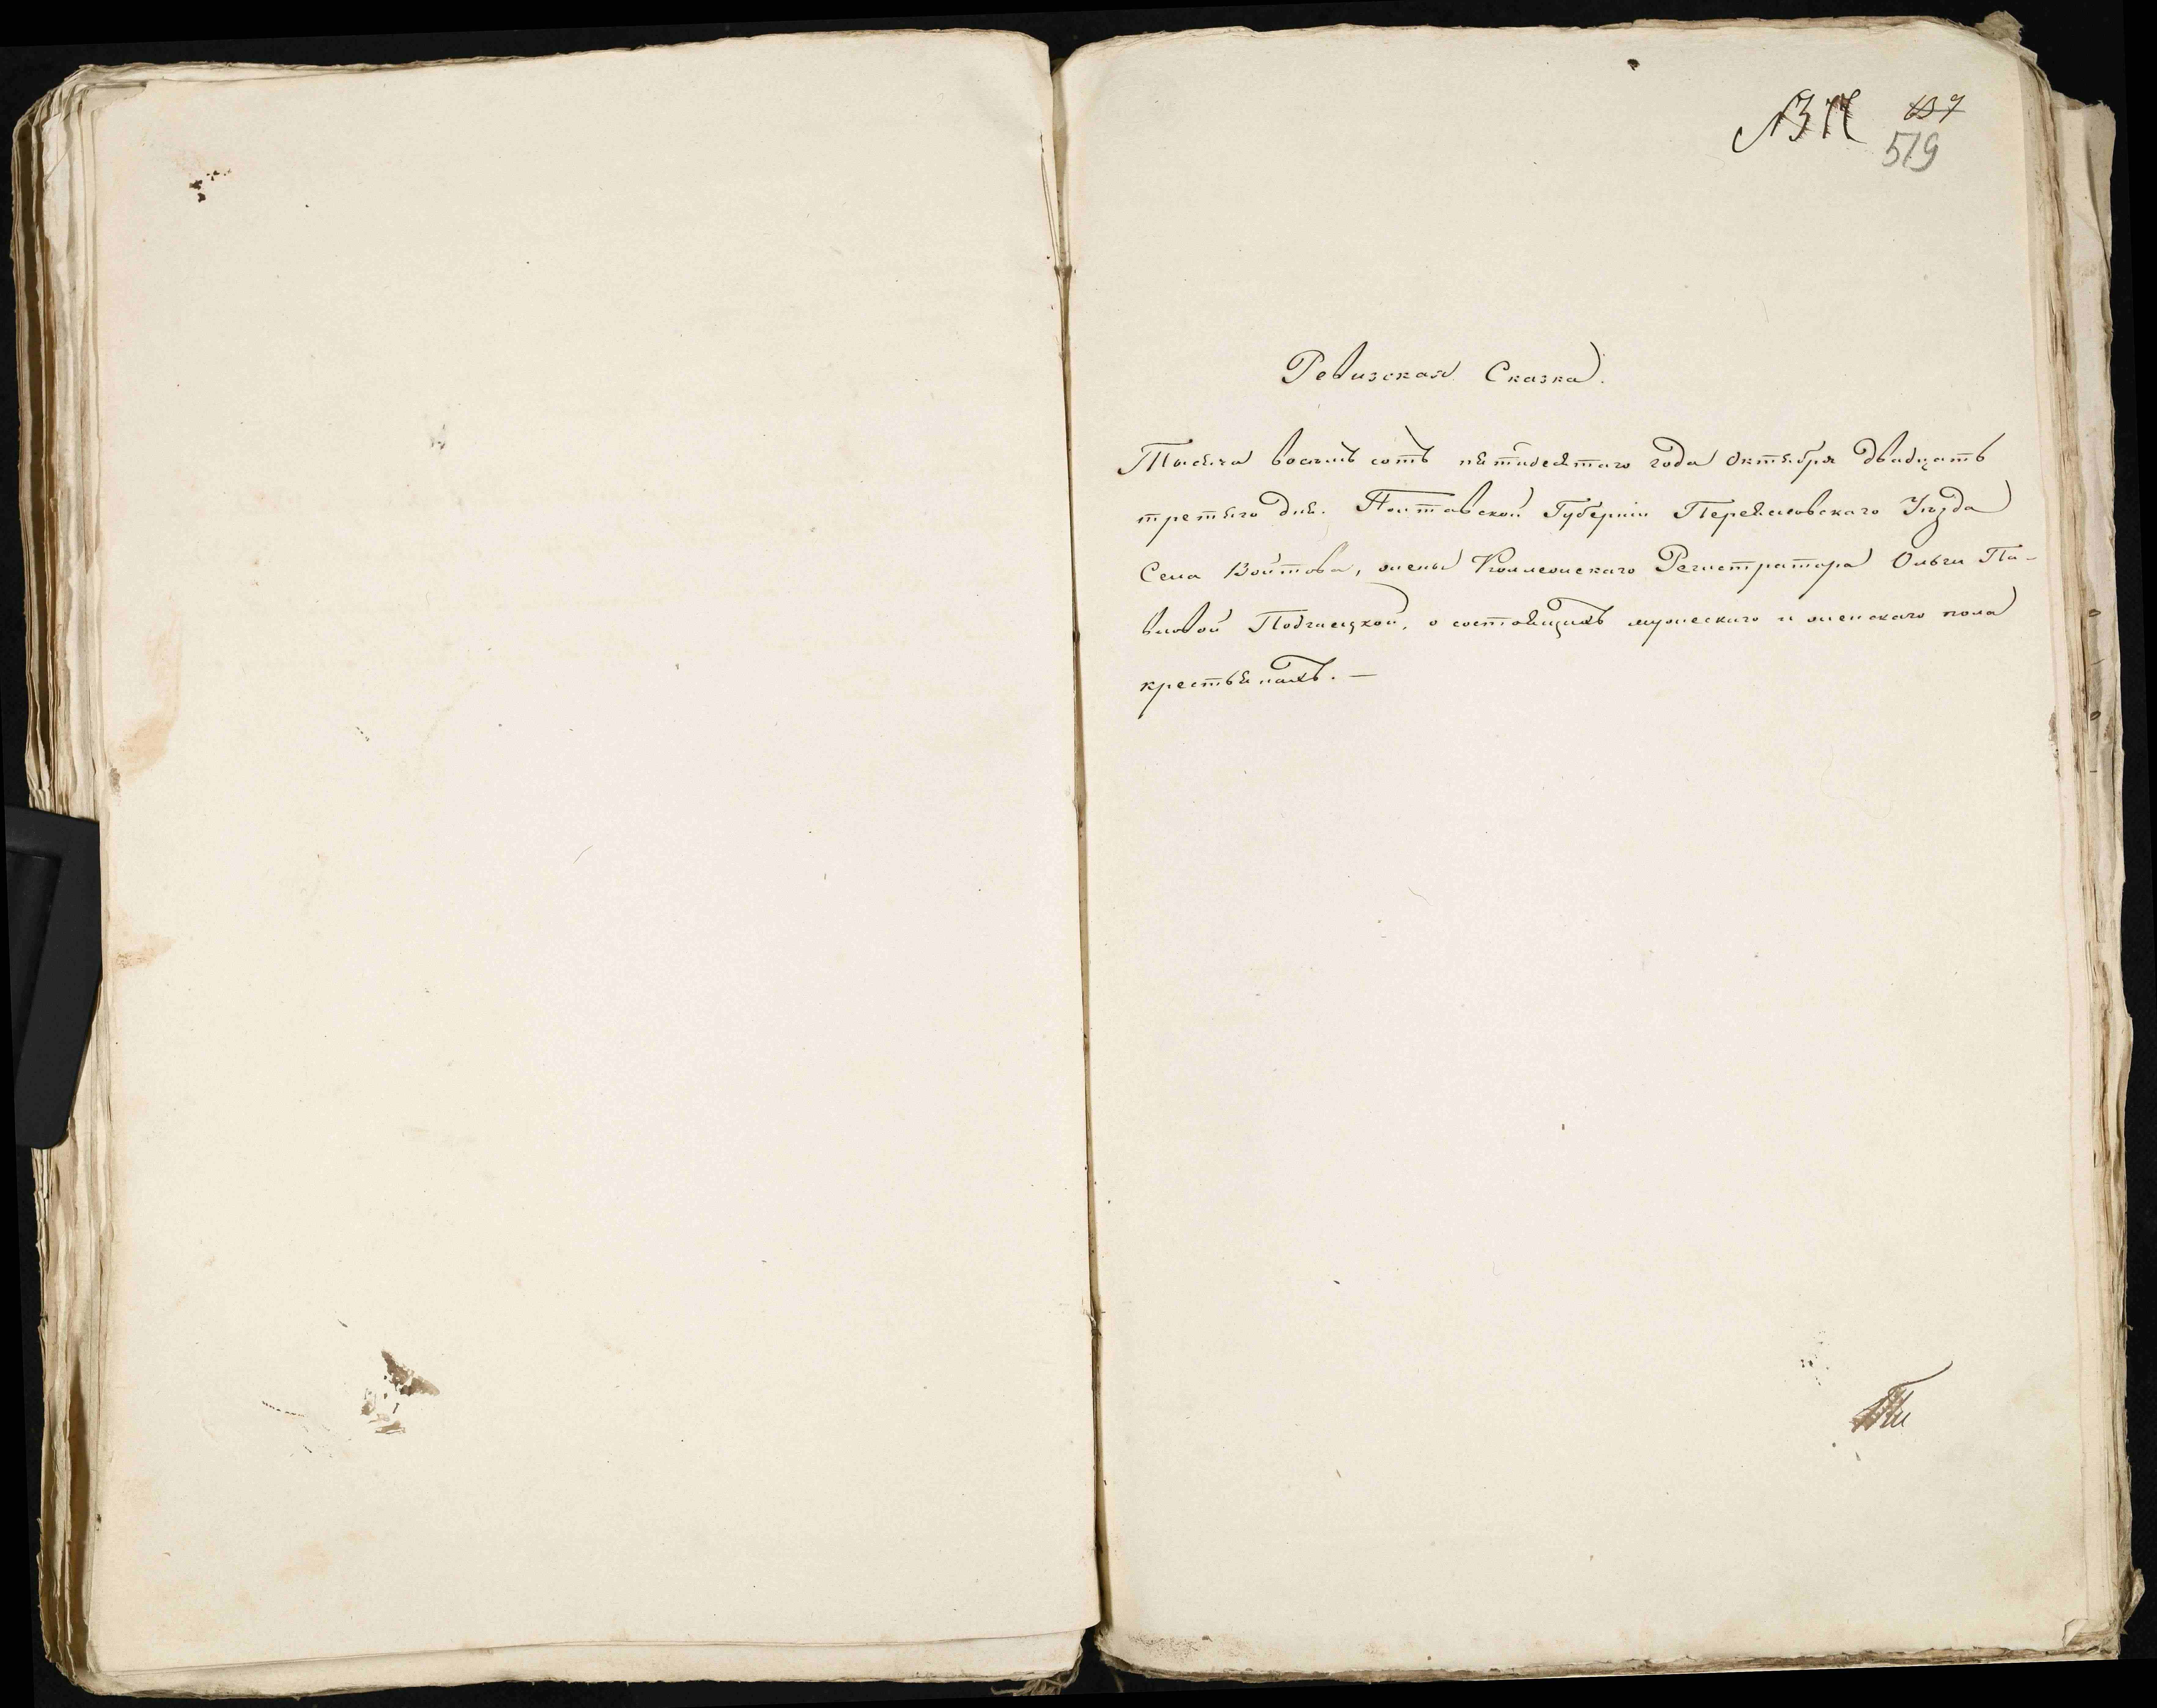 637
519
Ревизская Сказка.
Тысяча восемь сотъ пятидесятаго года Октября двадцать
третяго дня. Полтавской Губерніи Переяславскаго Уѣзда
Села Войтова, жены Коллежскаго Регистратора Ольги Па-
вловой Подгаецкой, о состоящихъ мужескаго и женскаго пола
крестьянахъ. —